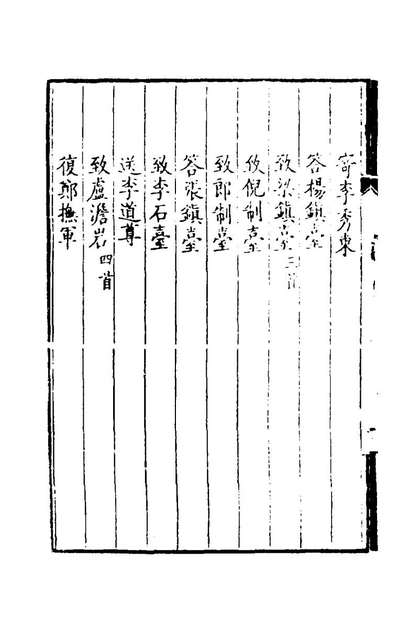 寄李秀東
答楊鎮臺
致梁鎮臺三首
致倪制臺
致郎制臺
答張鎮臺
致李石臺
送李道尊
致盧澹岩四首
復鄭撫軍